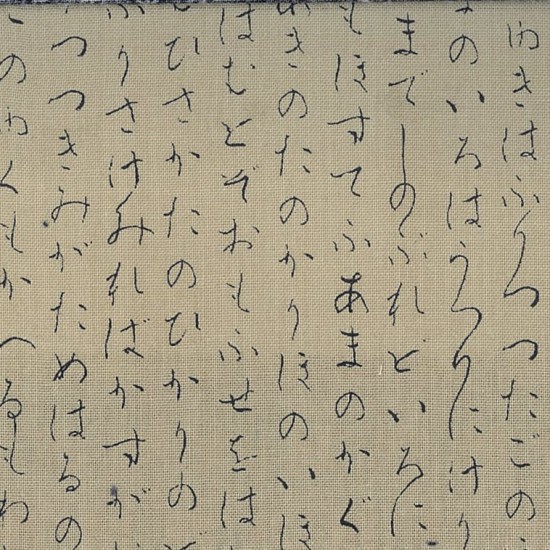 ゆきはふりつつたごの
のいろはうつりにけり
までしのぶれどいろに
もほすてふあまのかぐ
あきのたのかりほのいほ
はむとぞおもふせをは
ひさかたのひかりの
ふりさけみればかすが
つつきみがためはるの
このゆくもかへるもわ